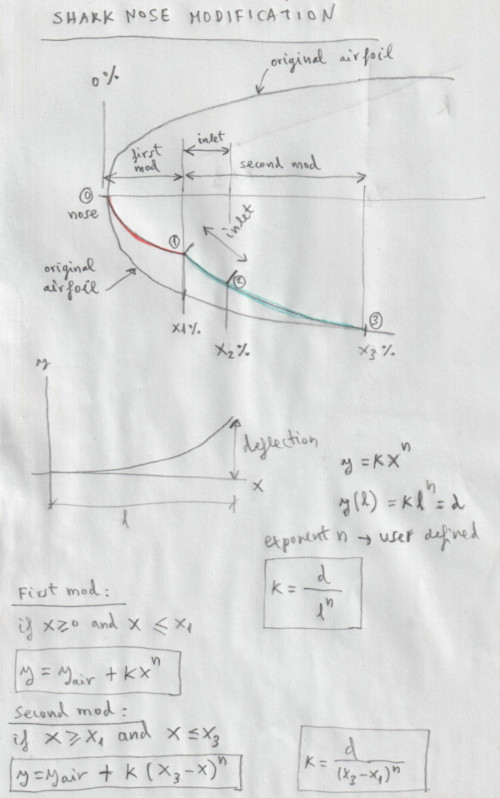 SHARK NOSE MODIFICATION
original airfoil
0%
inlet
first
mod
second mod
0
nose
inlet
1
original
airfoil
2
3
x1%
x2%
x3%
y
deflection
x
l
y = kxⁿ
y(l) = klⁿ = d
exponent n → user defined
k = d / lⁿ
First mod:
if x ≥ 0 and x ≤ x₁
y = yair + kxⁿ
Second mod:
if x ≥ x₁ and x ≤ x₃
y = yair + k (x₃ - x)ⁿ
k = d / (x₃ - x₁)ⁿ